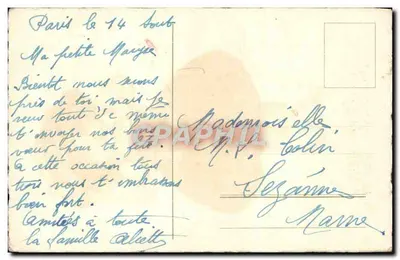 Paris le 14 Aout
Ma petite
Bientôt nous serons
près de toi, mais je
veux tout d'c meme
t'envoyer nos bons
vœux pour ta fête.
A cette occasion tous
trois nous t'embrassons
bien fort.
Amitiés à toute
la famille
Mademoiselle
M. Colin
Sézanne
Marne.